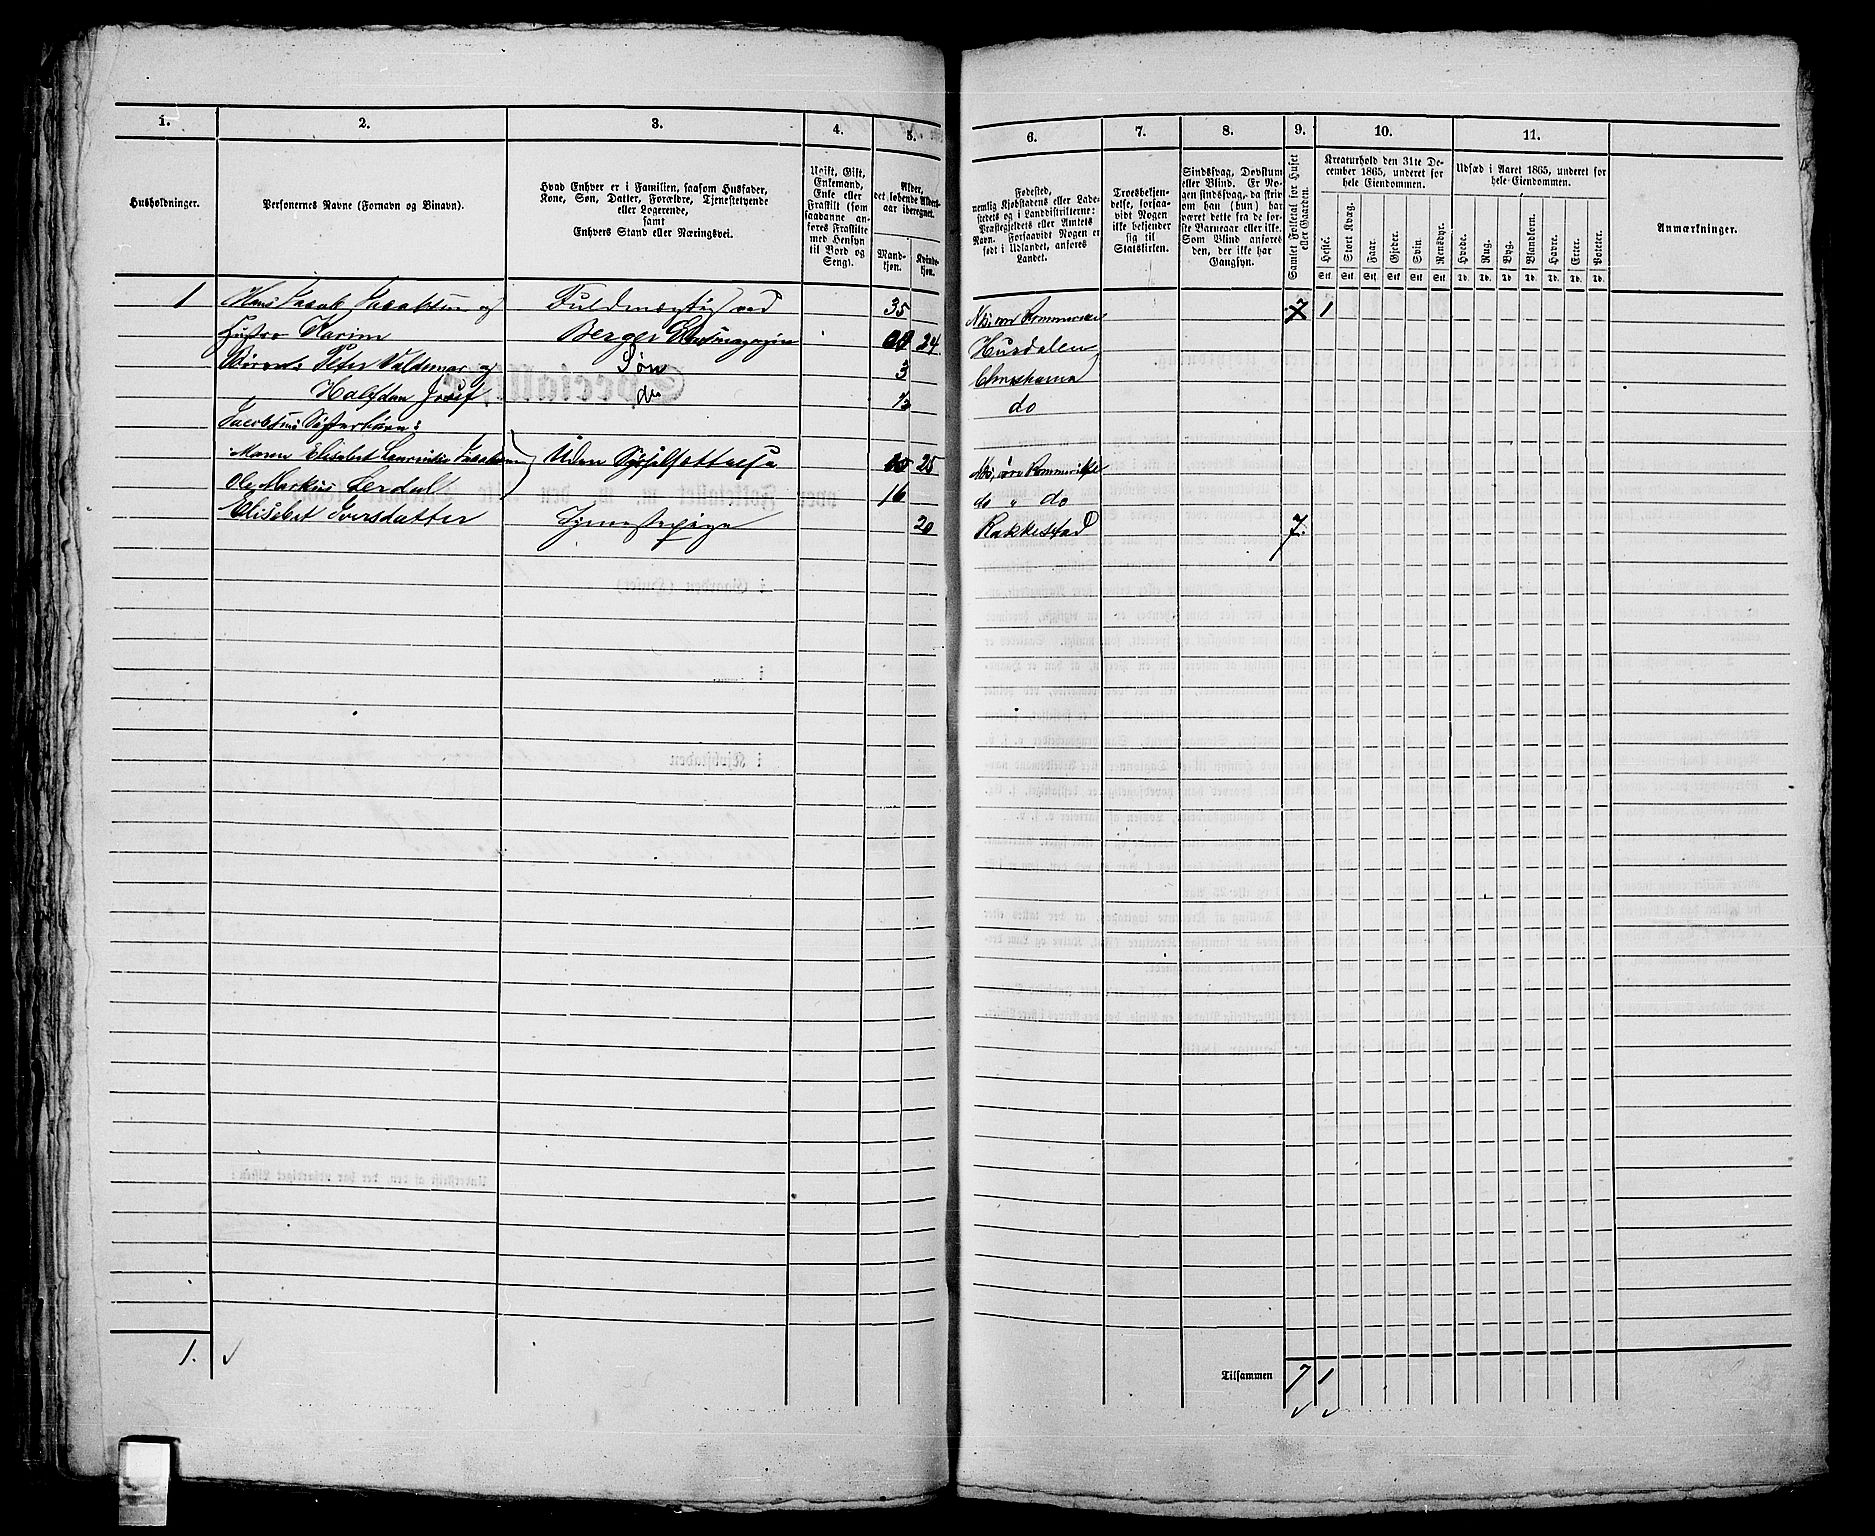 1. 2. 3. 4. 5. 6. 7. 8. 9. 10. 11.
Husholdninger.
Personernes Navne (Fornavn og Binavn).
Hvad Enhver er i Familien, saasom Husfader,
Kone, Søn, Datter, Forældre, Tjenestetyende
eller Logerende,
samt
Enhvers Stand eller Næringsvei.
Ugift, Gift,
Enkemand,
Enke eller
Fraskilt (som
saadanne an-
føres Fraskilte
med Hensyn
til Bord og
Seng).
Alder,
det løbende Alders-
aar iberegnet.
Mand-
kjøn.
Kvinde-
kjøn.
Fødested,
nemlig Kjøbstadens eller Lade-
stedets og i Landdistrikterne:
Præstegjeldets eller Amtets
Navn. Forsaavidt Nogen er
født i Udlandet, anføres
Landet.
Troesbekjen-
delse, forsaa-
vidt Nogen
ikke bekjender
sig til
Statskirken.
Sindssvag, Døvstum
eller Blind. Er No-
gen sindssvag, da skriv
om han (hun) har
været dette fra de før-
ste Barneaar eller ikke.
Som Blind anføres
den, der ikke har
Gangsyn.
Samlet Folketal for Huset
eller Gaarden.
Kreaturhold den 31te De-
cember 1865, underet for
hele Eiendommen.
Heste.
Stort Kvæg.
Faar.
Gjeder.
Svin.
Rensdyr.
Stk. Stk. Stk. Stk. Stk. Stk.
Udsæd i Aaret 1865, underet for
hele Eiendommen.
Hvede.
Rug.
Byg.
Blandkorn.
Havre.
Erter.
Poteter.
Td. Td. Td. Td. Td. Td. Td.
Anmærkninger.
1 Hans Jacob Jacobsen og Fuldmægtig ved 35 Romerike 7 1
Hustro Karine Berger 24 Hurdalen
Børn: Peter Valdemar og Søn 3 Christiania
Halfdan Josef do do
Jacobsens Søsterbørn:
Maren Elisabet Laurentse Uden Sysselsættelse 25 øvre Rommerike
Ole Markus Lerdal 16 do " do
Elisebet Iversdatter Tjenestepige 20 Rakkestad 7.
1.
Tilsammen 7 1